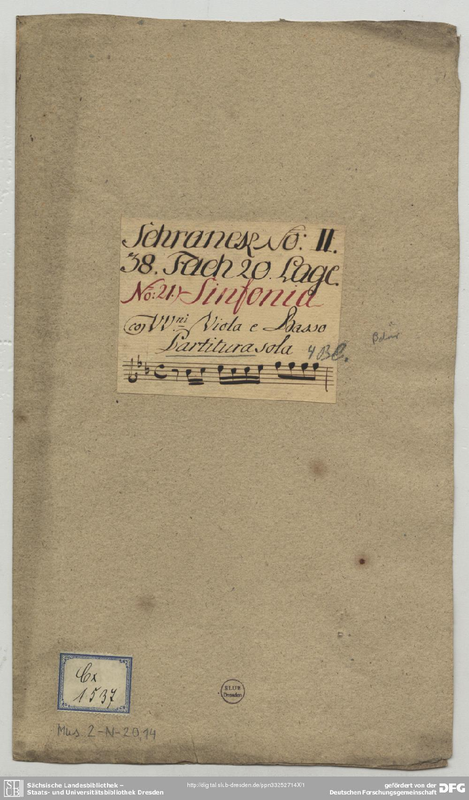 Schranck No: II.
38. Fach 20. Lage.
No: 21.) Sinfonia
co VVni Viola e Basso
Partitura sola
4 Bl.
Cx
1537
Mus. 2-N-20,14
SLUB
Dresden
Sächsische Landesbibliothek –
Staats- und Universitätsbibliothek Dresden
http://digital.slub-dresden.de/ppn33252714X/1
gefördert von der
Deutschen Forschungsgemeinschaft
DFG